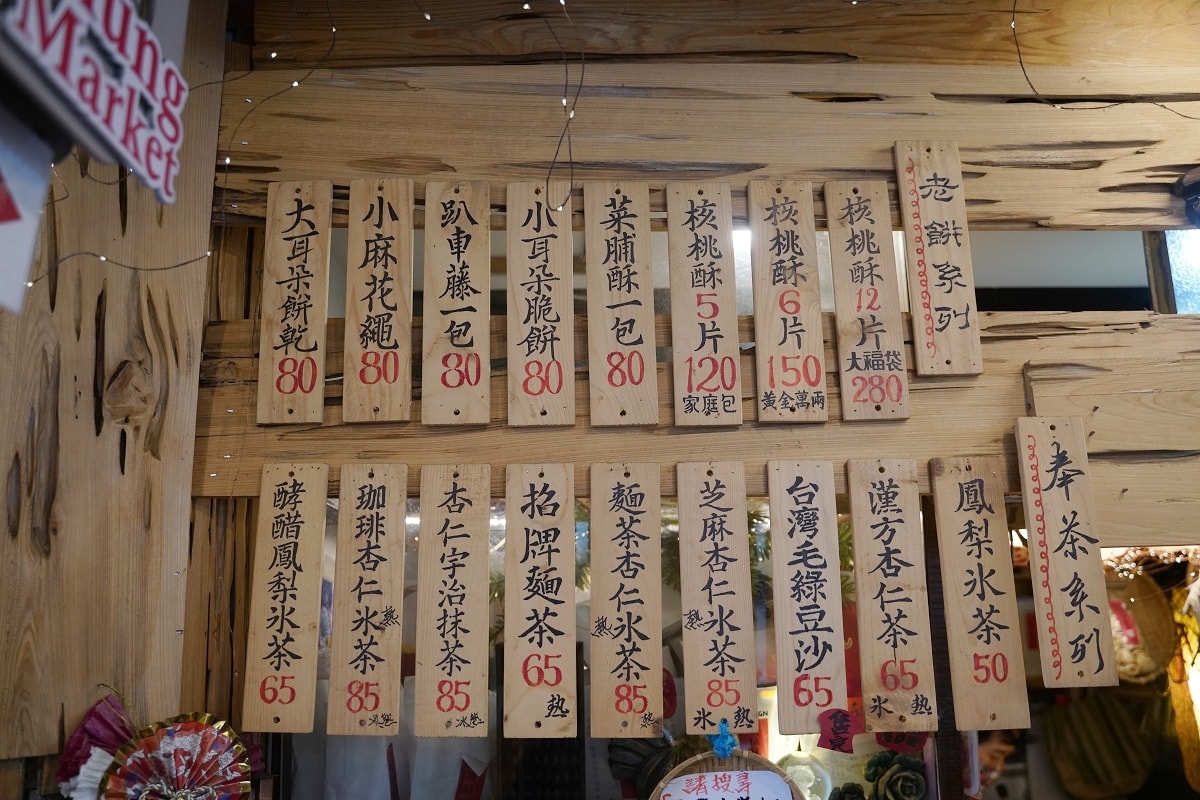 ung
Market
老餅系列
核桃酥12片
大福袋
280
核桃酥6片
150
黃金萬兩
核桃酥5片
120
家庭包
菜脯酥一包
80
小耳朵脆餅
80
趴車藤一包
80
小麻花繩
80
大耳朵餅乾
80
奉茶系列
鳳梨氷茶
50
漢方杏仁茶
65
氷熱
台灣毛綠豆沙
65
芝麻杏仁氷茶
熱
85
氷熱
麵茶杏仁氷茶
熱
85
熱
招牌麵茶
65
熱
杏仁宇治抹茶
85
冰熱
珈琲杏仁氷茶
熱
85
酵醋鳳梨氷茶
65
請搜尋